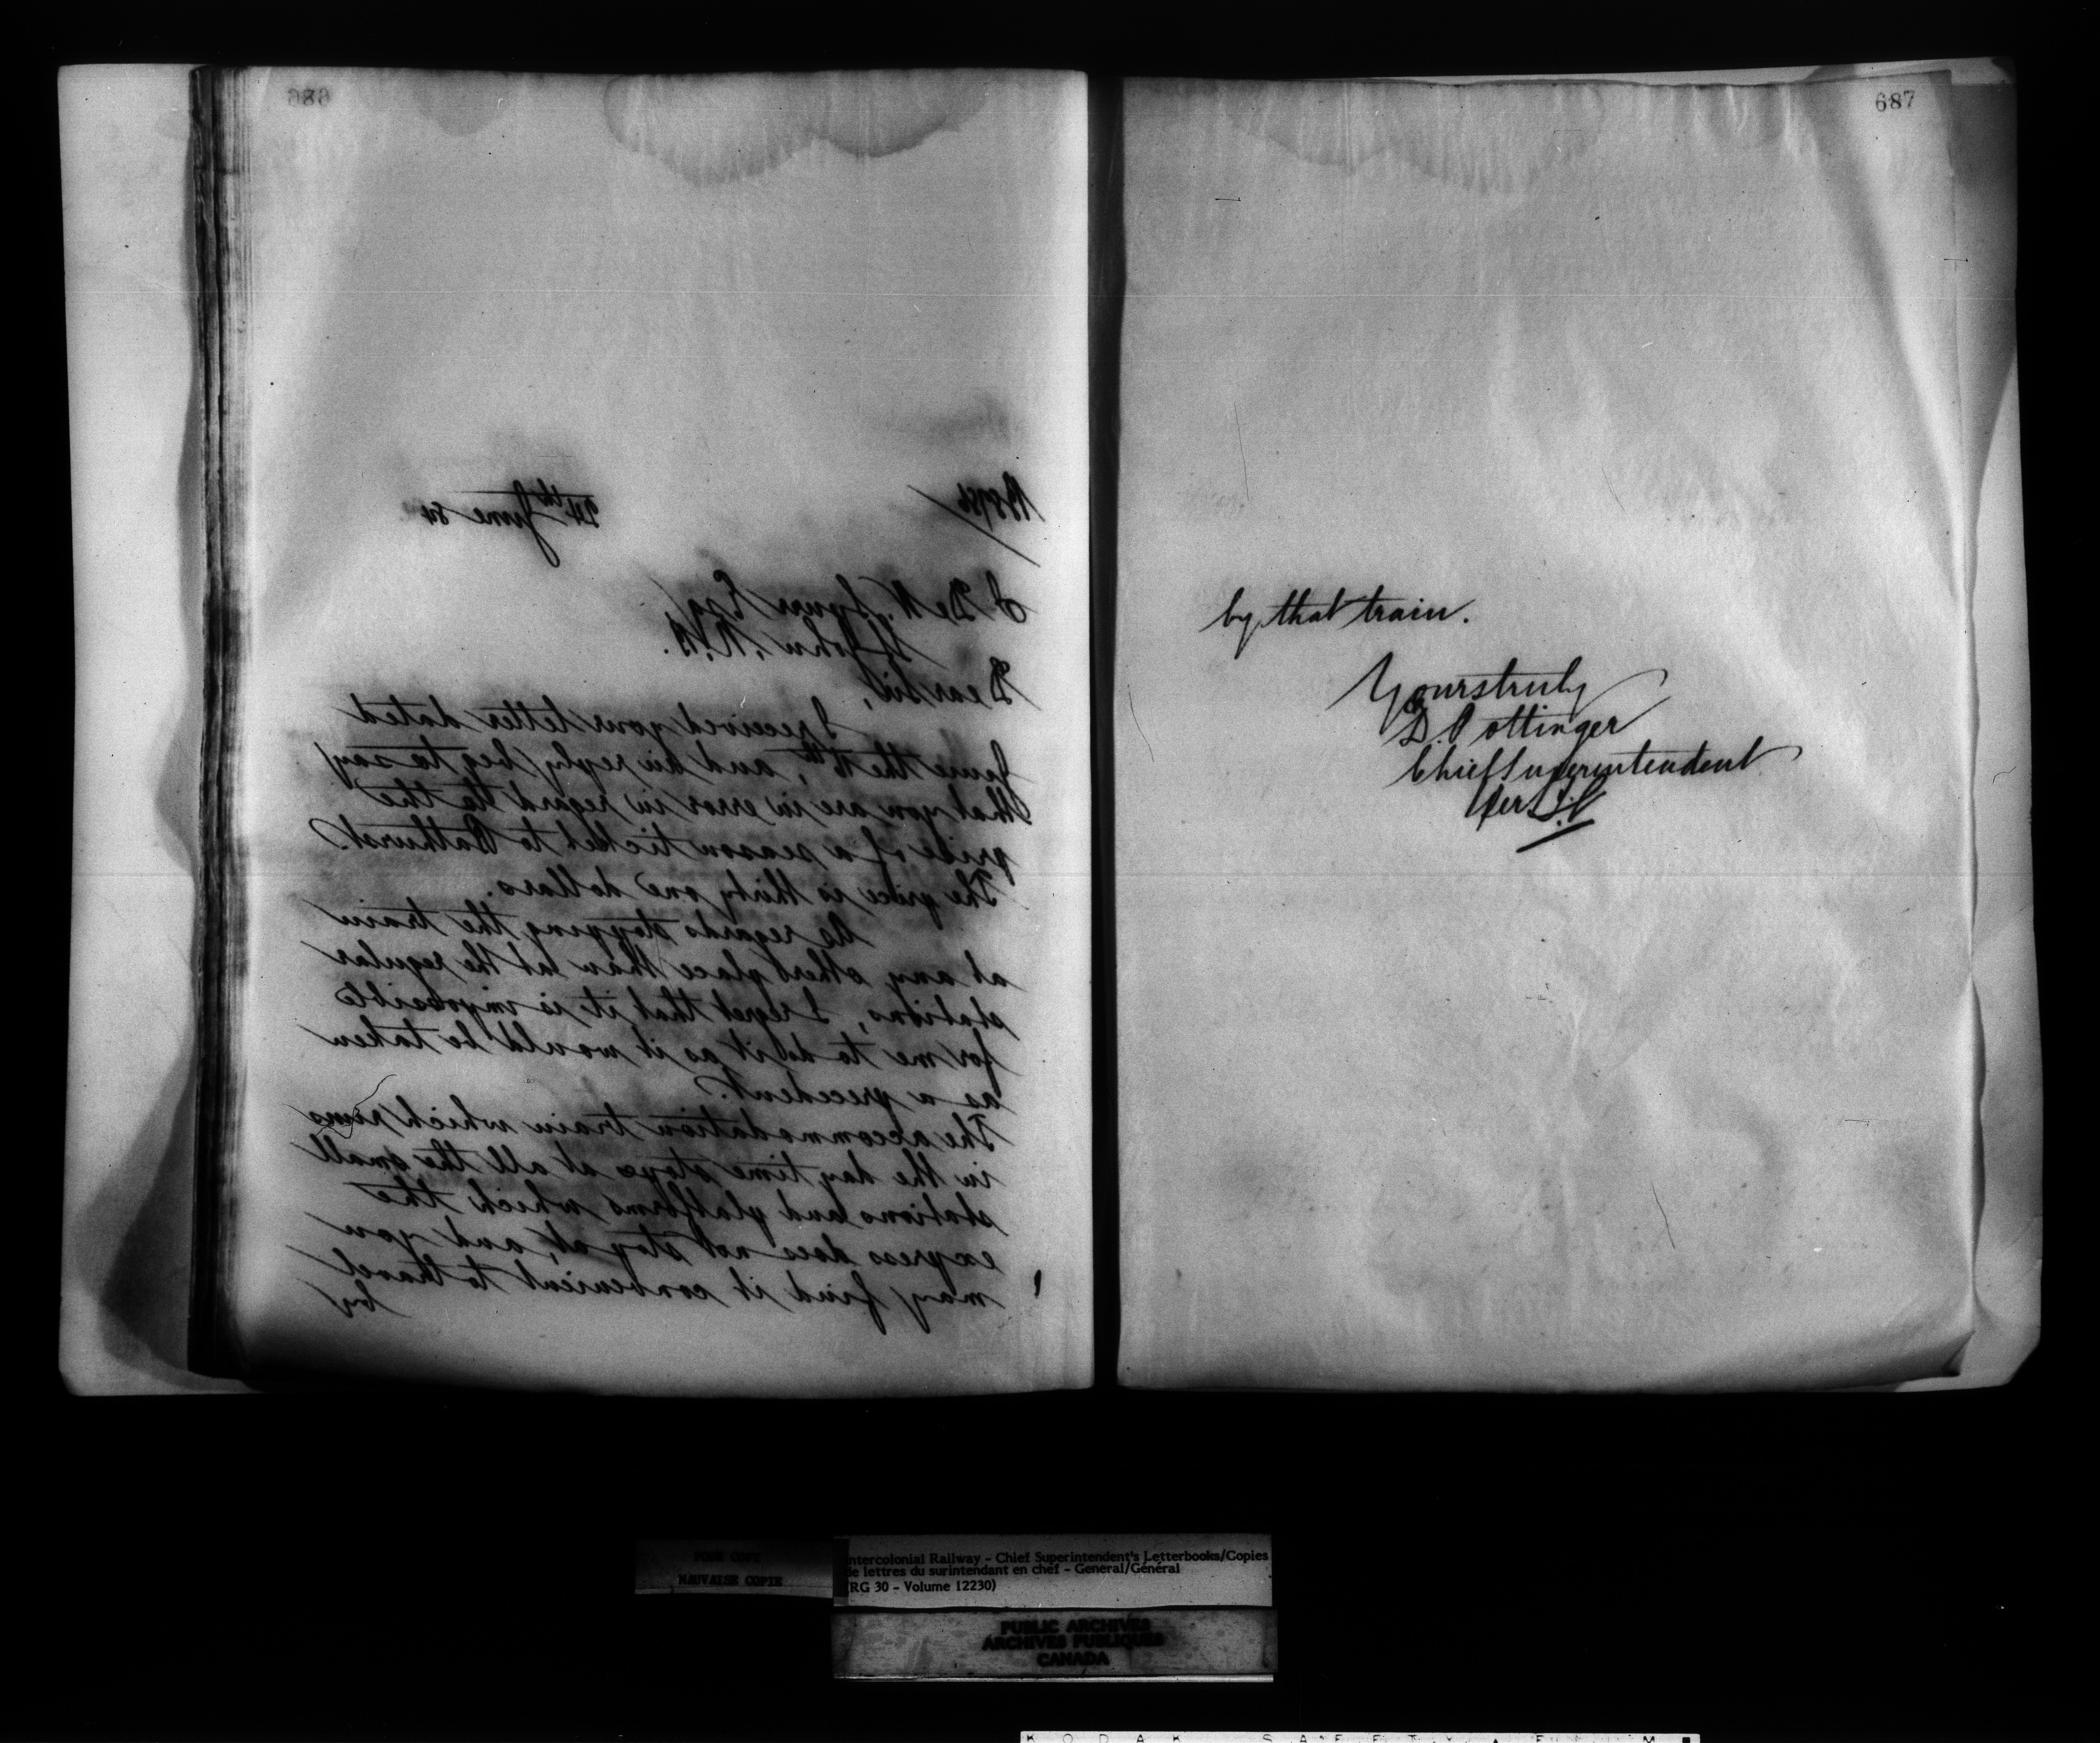 686
24th June 84
J. De W. Spurr Esq,
St John, N.B.
Dear Sir,
I received your letter dated
June the 16th, and in reply beg to say
that you are in error in regard to the
price of a season ticket to Bathurst.
The price is thirty one dollars.
As regards stopping the train
at any other place than at the regular
stations, I regret that it is impossible
for me to do it as it would be taken
as a precedent.
The accommodation train which runs
in the day time stops at all the small
stations and platforms which the
express does not stop at, and you
may find it convenient to travel
by
687
by that train.
Yours truly
D. Pottinger
Chief Superintendent
Per
POOR COPY
MAUVAISE COPIE
ntercolonial Railway - Chief Superintendent's Letterbooks/Copies
de lettres du surintendant en chef - General/Général
(RG 30 - Volume 12230)
PUBLIC ARCHIVES
ARCHIVES PUBLIQUES
CANADA
KODAK SAFETY FILM